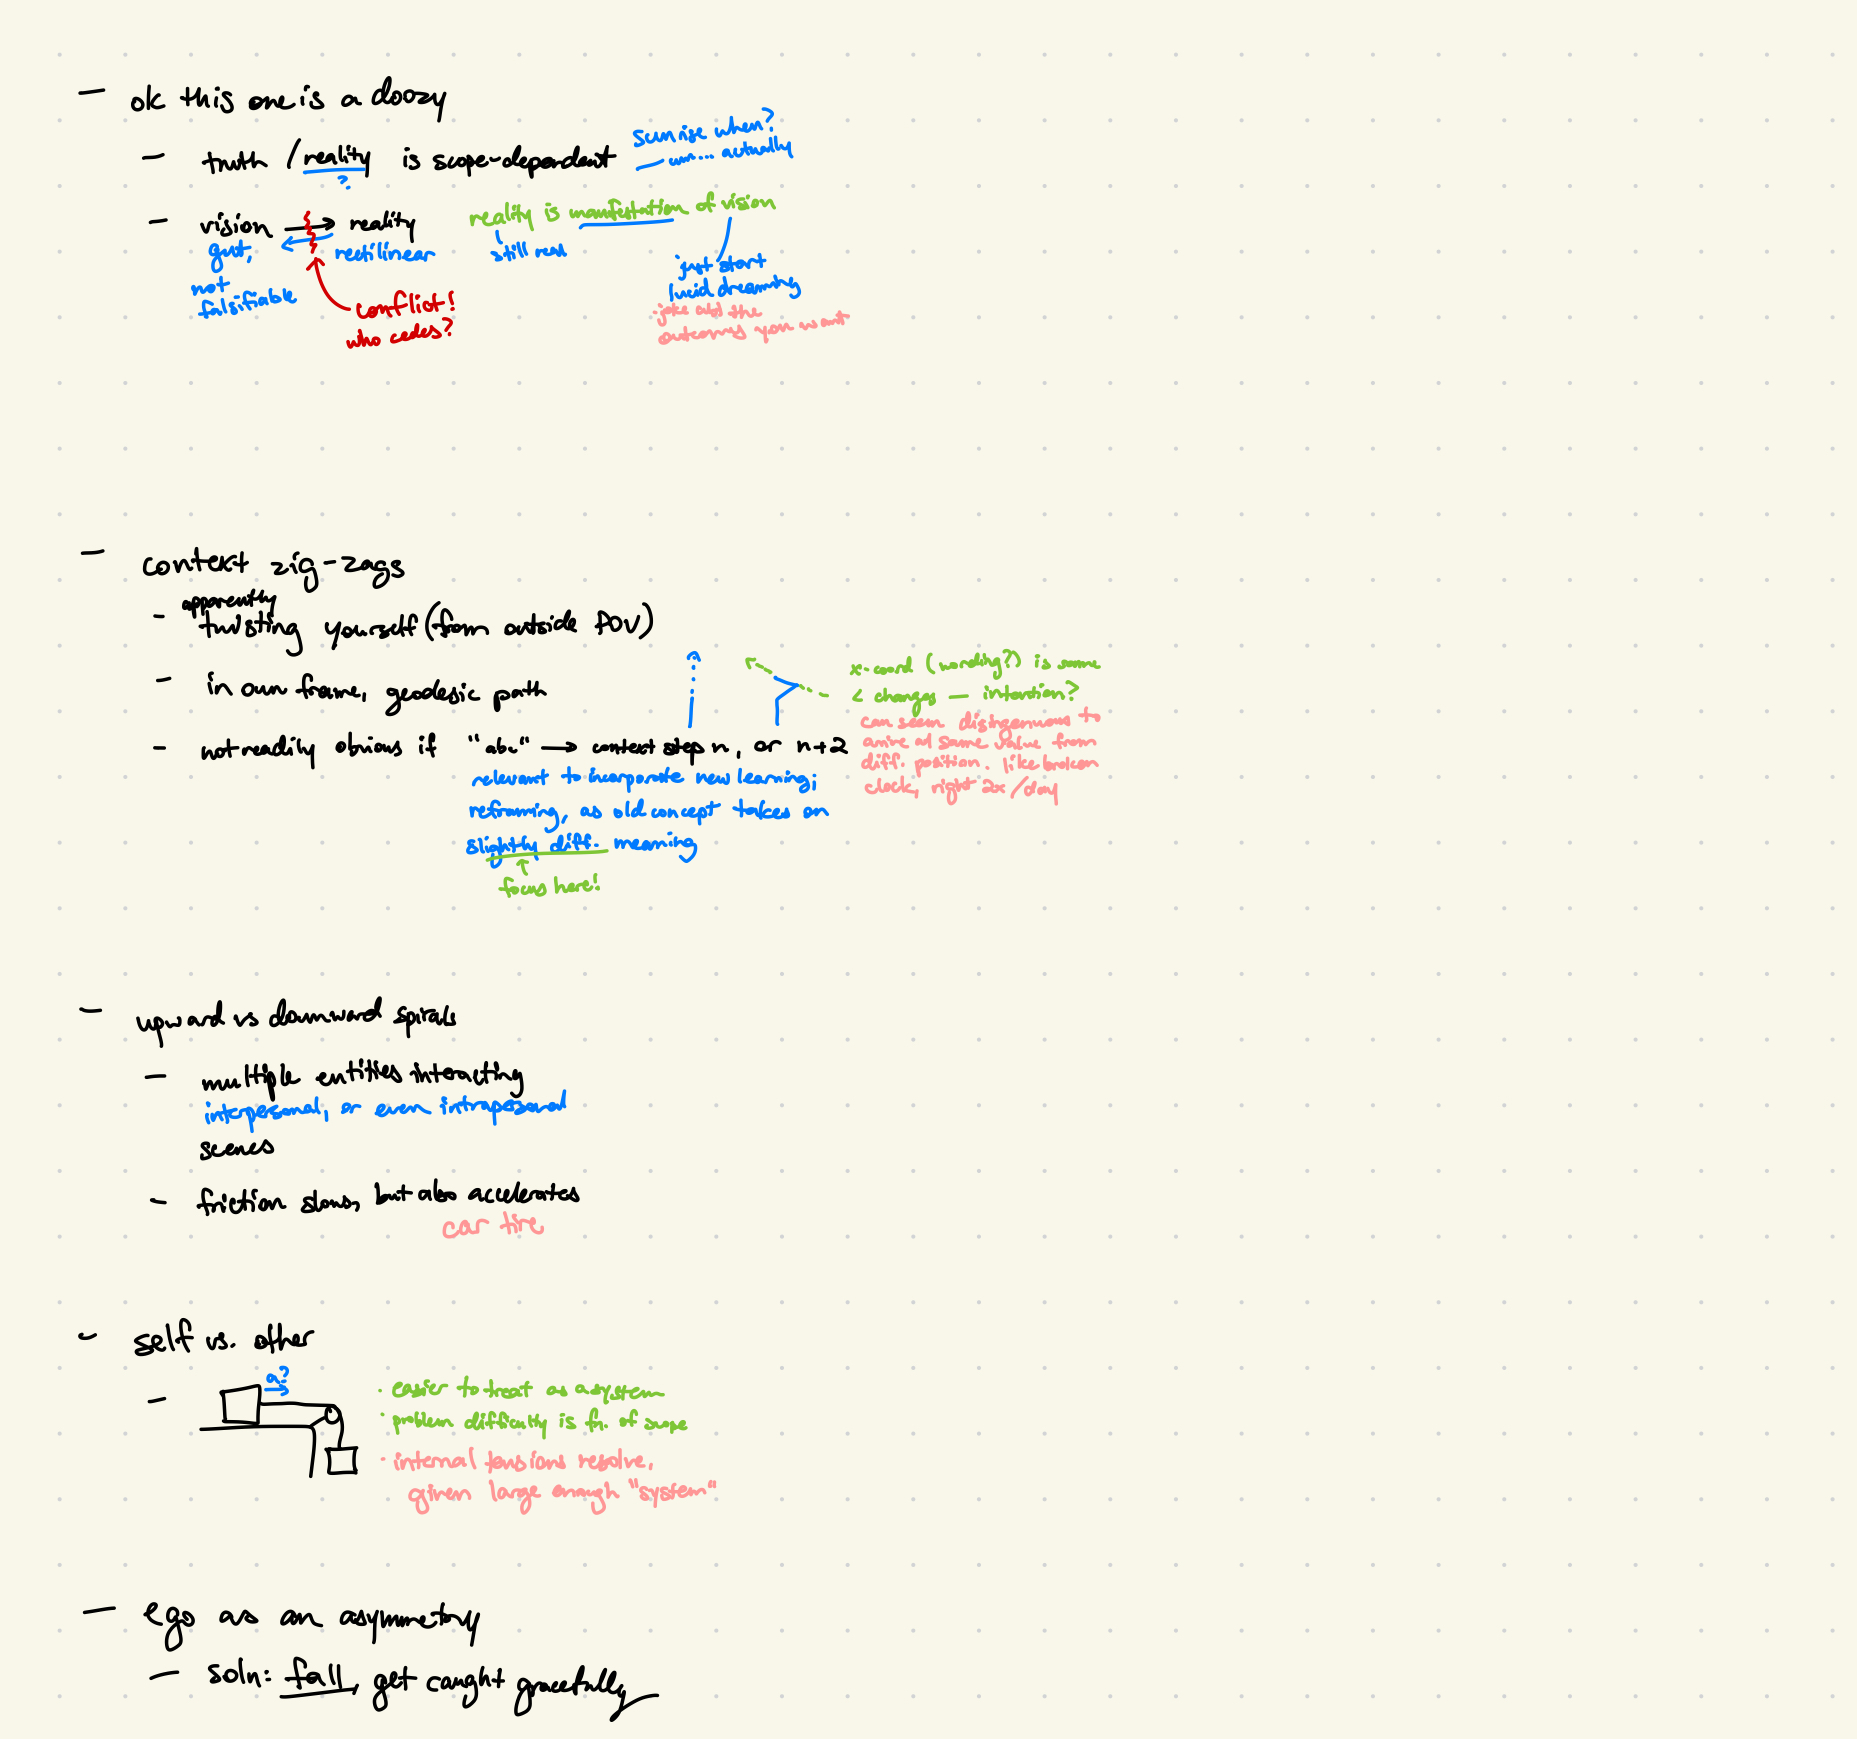 – ok this one is a doozy
– truth / reality is scope-dependent
?
sunrise when?
– um... actually
– vision → reality
gut,
not
falsifiable
rectilinear
conflict!
who cedes?
reality is manifestation of vision
still real
just start
lucid dreaming
joke abt the
outcomes you want
– context zig-zags
apparently
– twisting yourself (from outside POV)
– in own frame, geodesic path
– not readily obvious if "abc" → context step n, or n+2
relevant to incorporate new learning;
reframing, as old concept takes on
slightly diff. meaning
focus here!
x-coord (wording?) is same
< changes — intention?
can seem disingenuous to
arrive at same value from
diff. position. like broken
clock, right 2x/day
– upward vs downward spirals
– multiple entities interacting
interpersonal, or even intrapersonal
scenes
– friction slows, but also accelerates
car tire
– self vs. other
–
a?
· easier to treat as a system
· problem difficulty is fn. of scope
· internal tensions resolve,
given large enough "system"
– ego as an asymmetry
– soln: fall, get caught gracefully